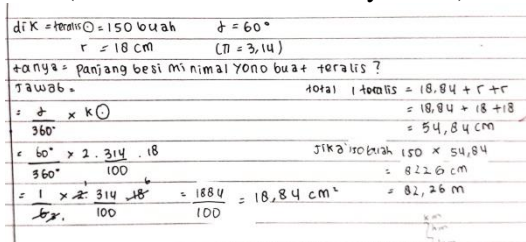 dik = teralis⊙ = 150 buah   α = 60°
r = 18 cm   (π = 3,14)
tanya = panjang besi minimal Yono buat teralis ?
Jawab =
= α/360° × K⊙
= 60°/360° × 2 . 314/100 . 18
= 1/6 × 2 . 314/100 18 = 1884/100 = 18,84 cm²
total 1 teralis = 18,84 + r + r
= 18,84 + 18 + 18
= 54,84 cm
Jika 150 buah 150 × 54,84
= 8226 cm
= 82,26 m
km